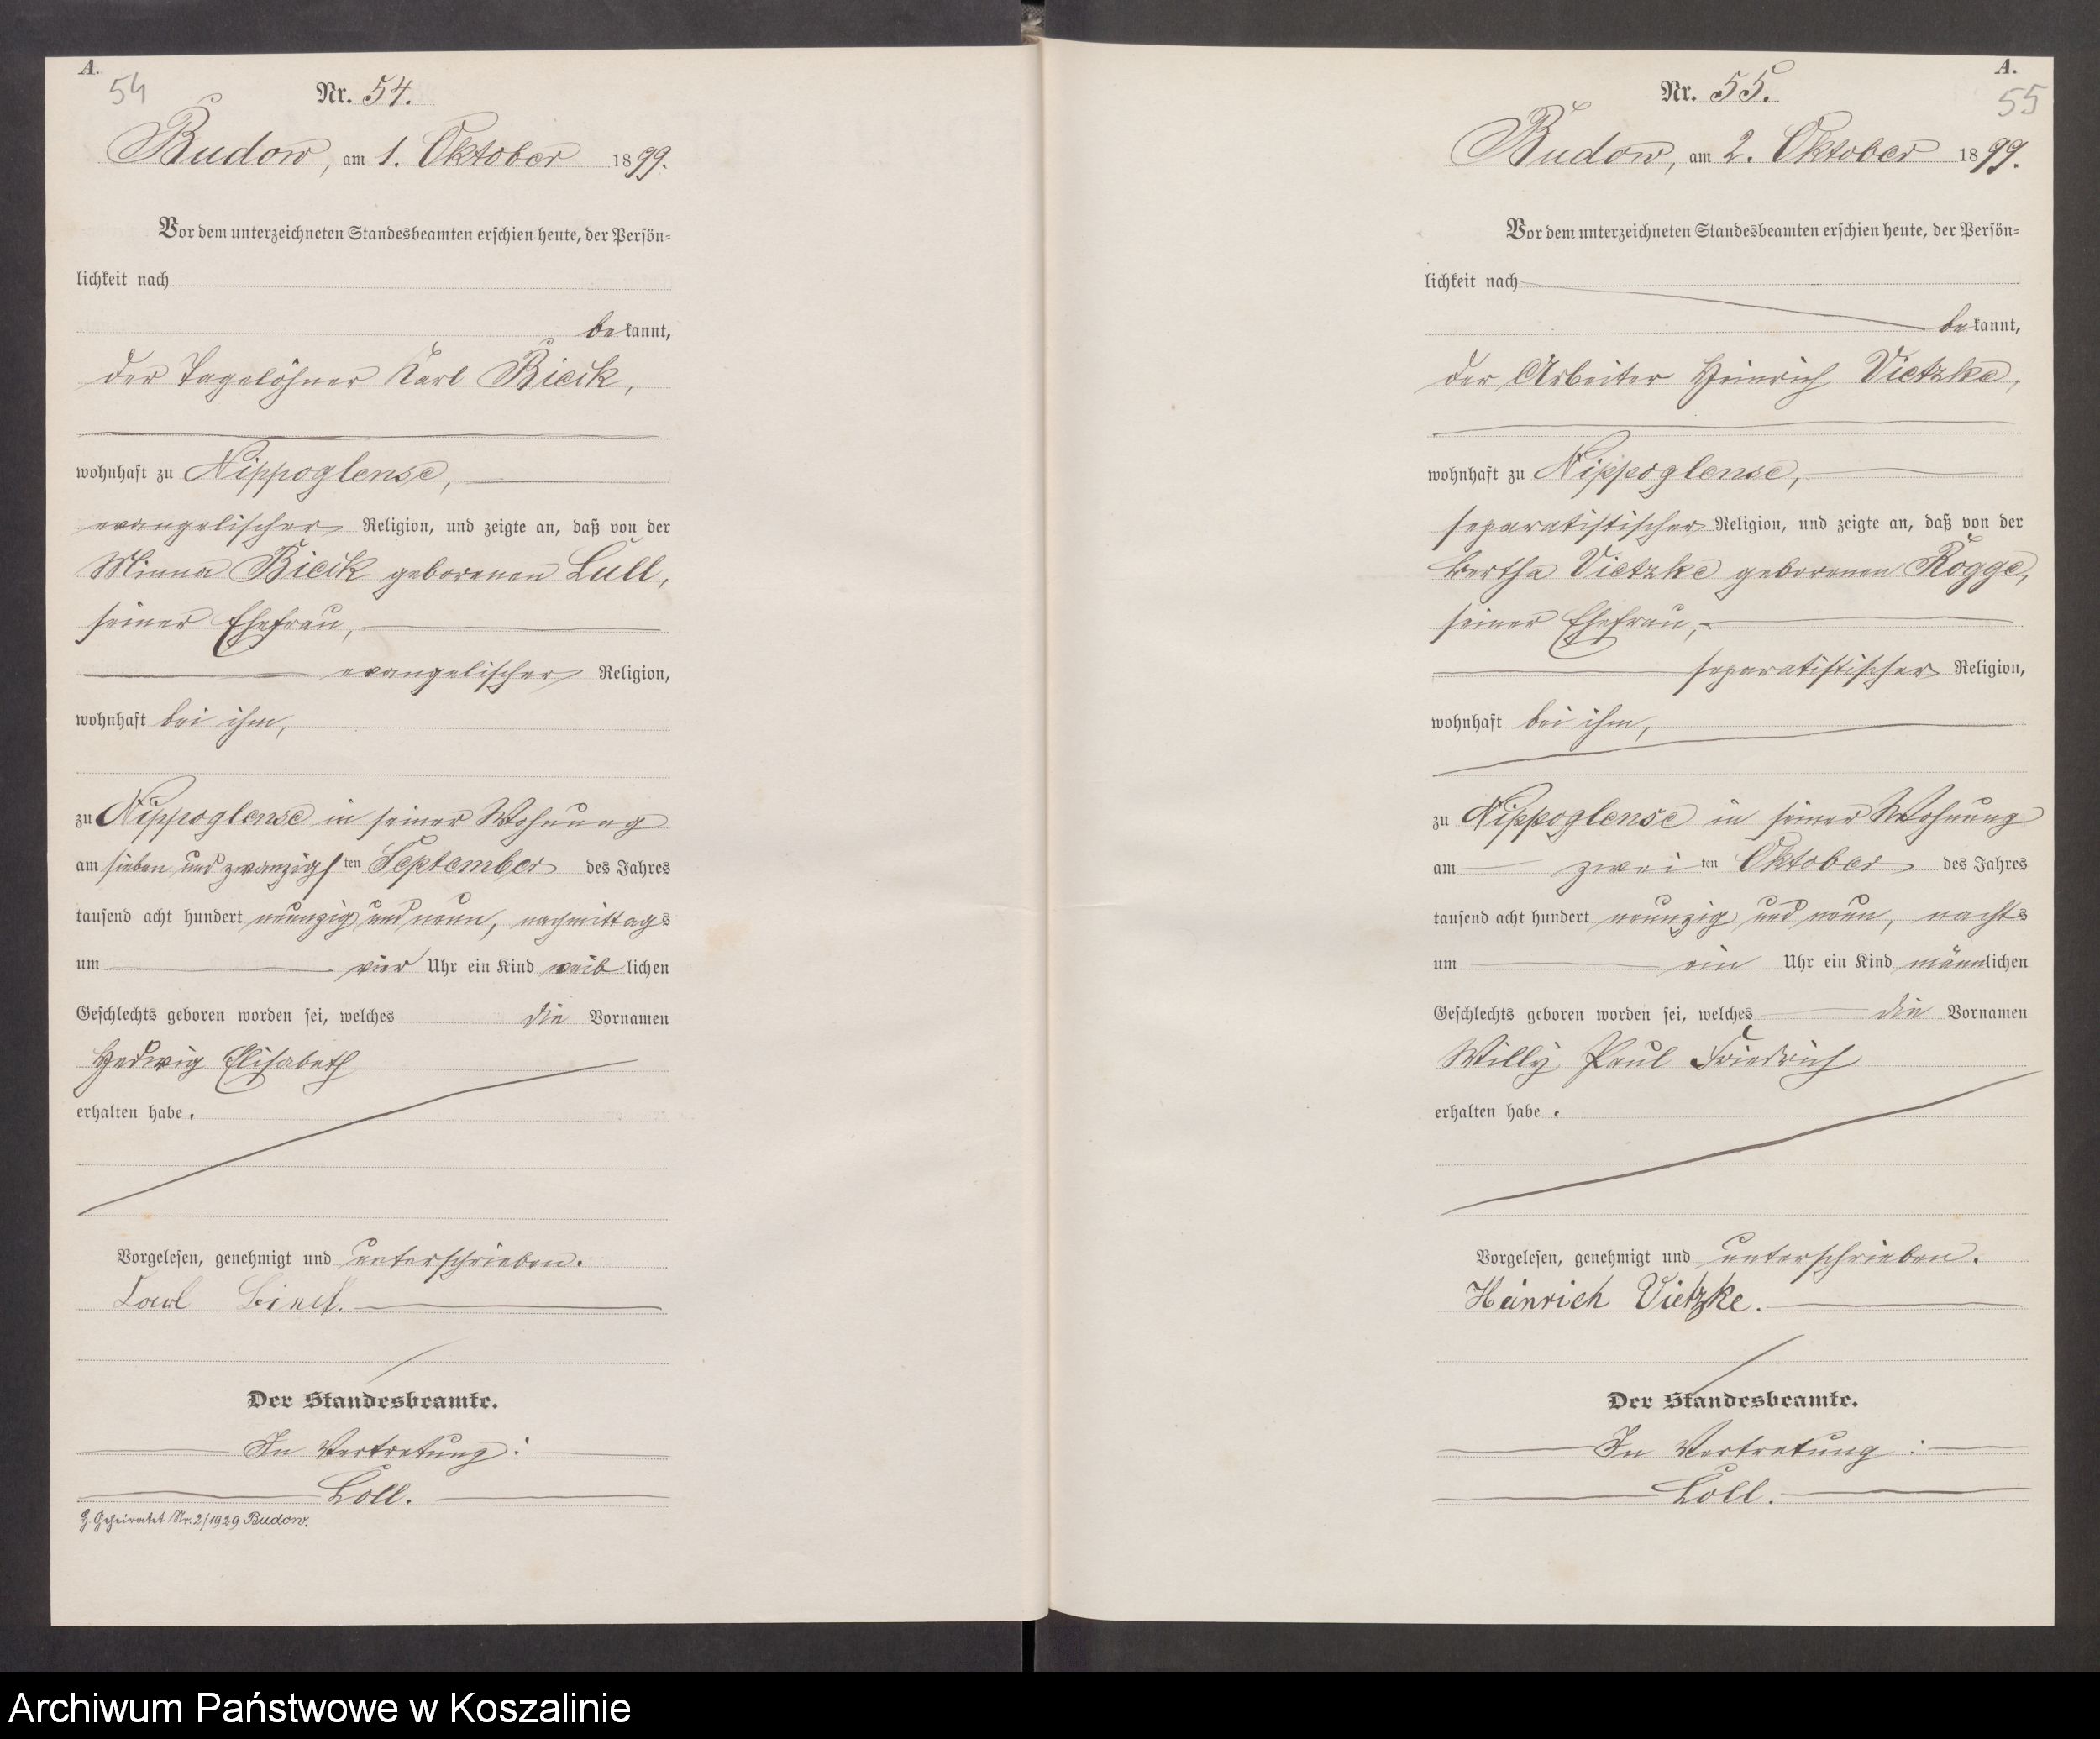 A.
54
Nr. 54.
Budow, am 1. Oktober 1899.
Vor dem unterzeichneten Standesbeamten erschien heute, der Persön=
lichkeit nach
bekannt,
der Tagelöhner Karl Bieck,
wohnhaft zu Nippoglense,
evangelischer Religion, und zeigte an, daß von der
Minna Bieck geborenen Lull,
seiner Ehefrau,
evangelischer Religion,
wohnhaft bei ihm,
zu Nippoglense in seiner Wohnung
am sieben und zwanzigsten September des Jahres
tausend acht hundert neunzig und neun, nachmittags
um vier Uhr ein Kind weiblichen
Geschlechts geboren worden sei, welches die Vornamen
Hedwig Elisabeth
erhalten habe.
Vorgelesen, genehmigt und unterschrieben.
Karl
Der Standesbeamte.
In Vertretung:
Loll.
H. Geheiratet Nr. 2/1929 Budow.
A.
55
Nr. 55.
Budow, am 2. Oktober 1899.
Vor dem unterzeichneten Standesbeamten erschien heute, der Persön=
lichkeit nach
bekannt,
der Arbeiter Heinrich Vietzke,
wohnhaft zu Nippoglense,
separatistischer Religion, und zeigte an, daß von der
Bertha Vietzke geborenen Rogge,
seiner Ehefrau,
separatistischer Religion,
wohnhaft bei ihm,
zu Nippoglense in seiner Wohnung
am zweiten Oktober des Jahres
tausend acht hundert neunzig und neun, nachts
um ein Uhr ein Kind männlichen
Geschlechts geboren worden sei, welches die Vornamen
Willy Paul Friedrich
erhalten habe.
Vorgelesen, genehmigt und unterschrieben.
Heinrich Vietzke.
Der Standesbeamte.
In Vertretung:
Loll.
Archiwum Państwowe w Koszalinie